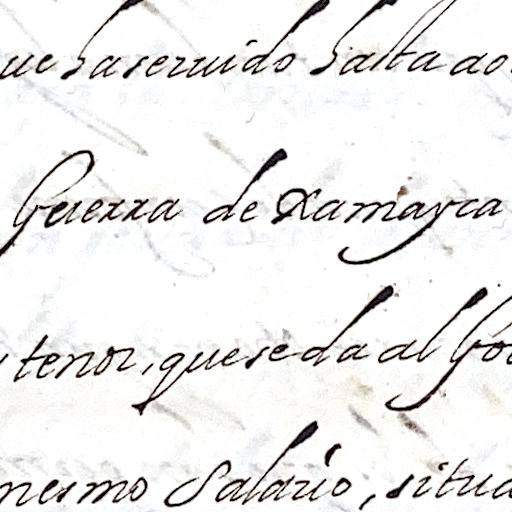 que ha seruido hasta ao
Guerra de Xamayca
y tenor, que se da al Go
mesmo Salario, situa